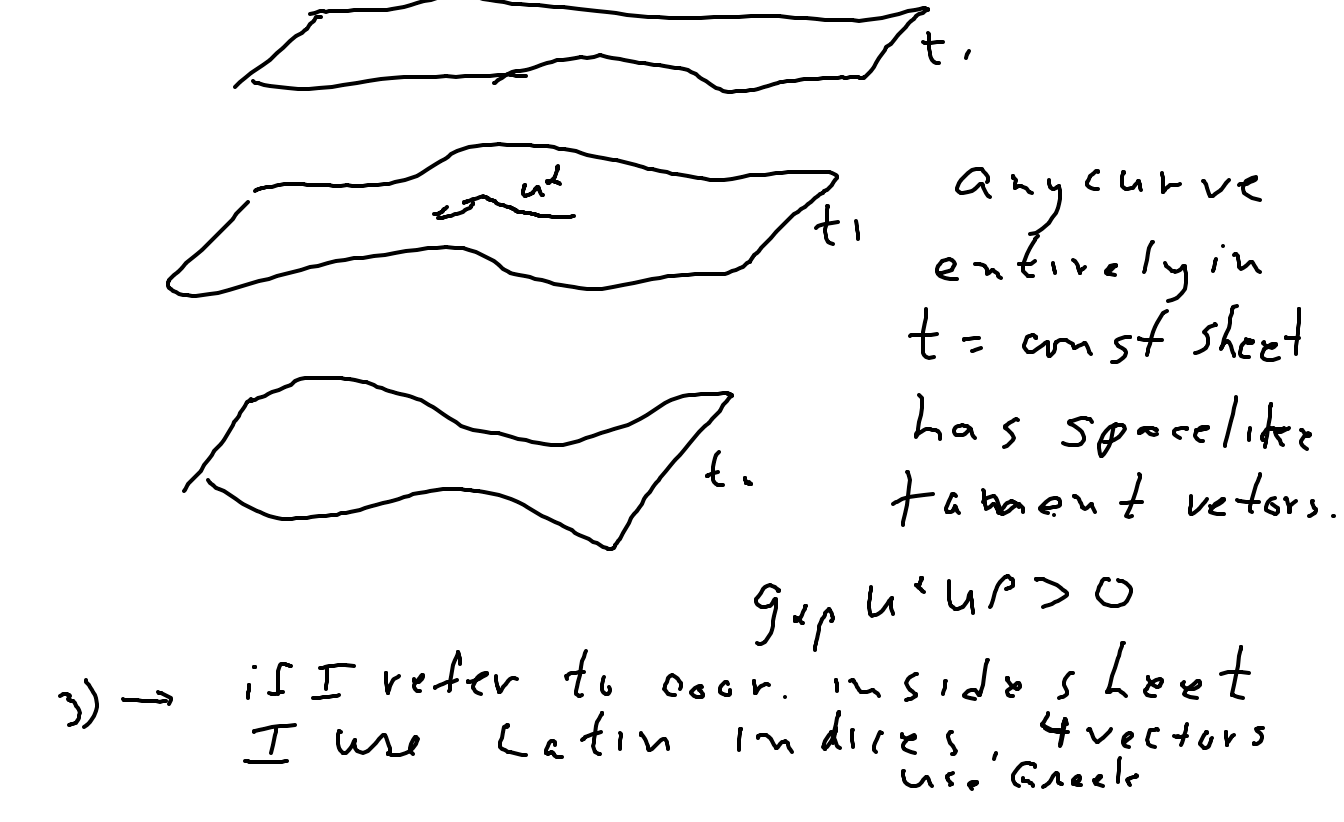 t.
u^α
t1
any curve
entirely in
t = const sheet
has spacelike
t.
tangent vetors.
g_αβ u^α u^β > 0
3) → if I refer to coor. inside sheet
I use Latin indices, 4 vectors
use Greek